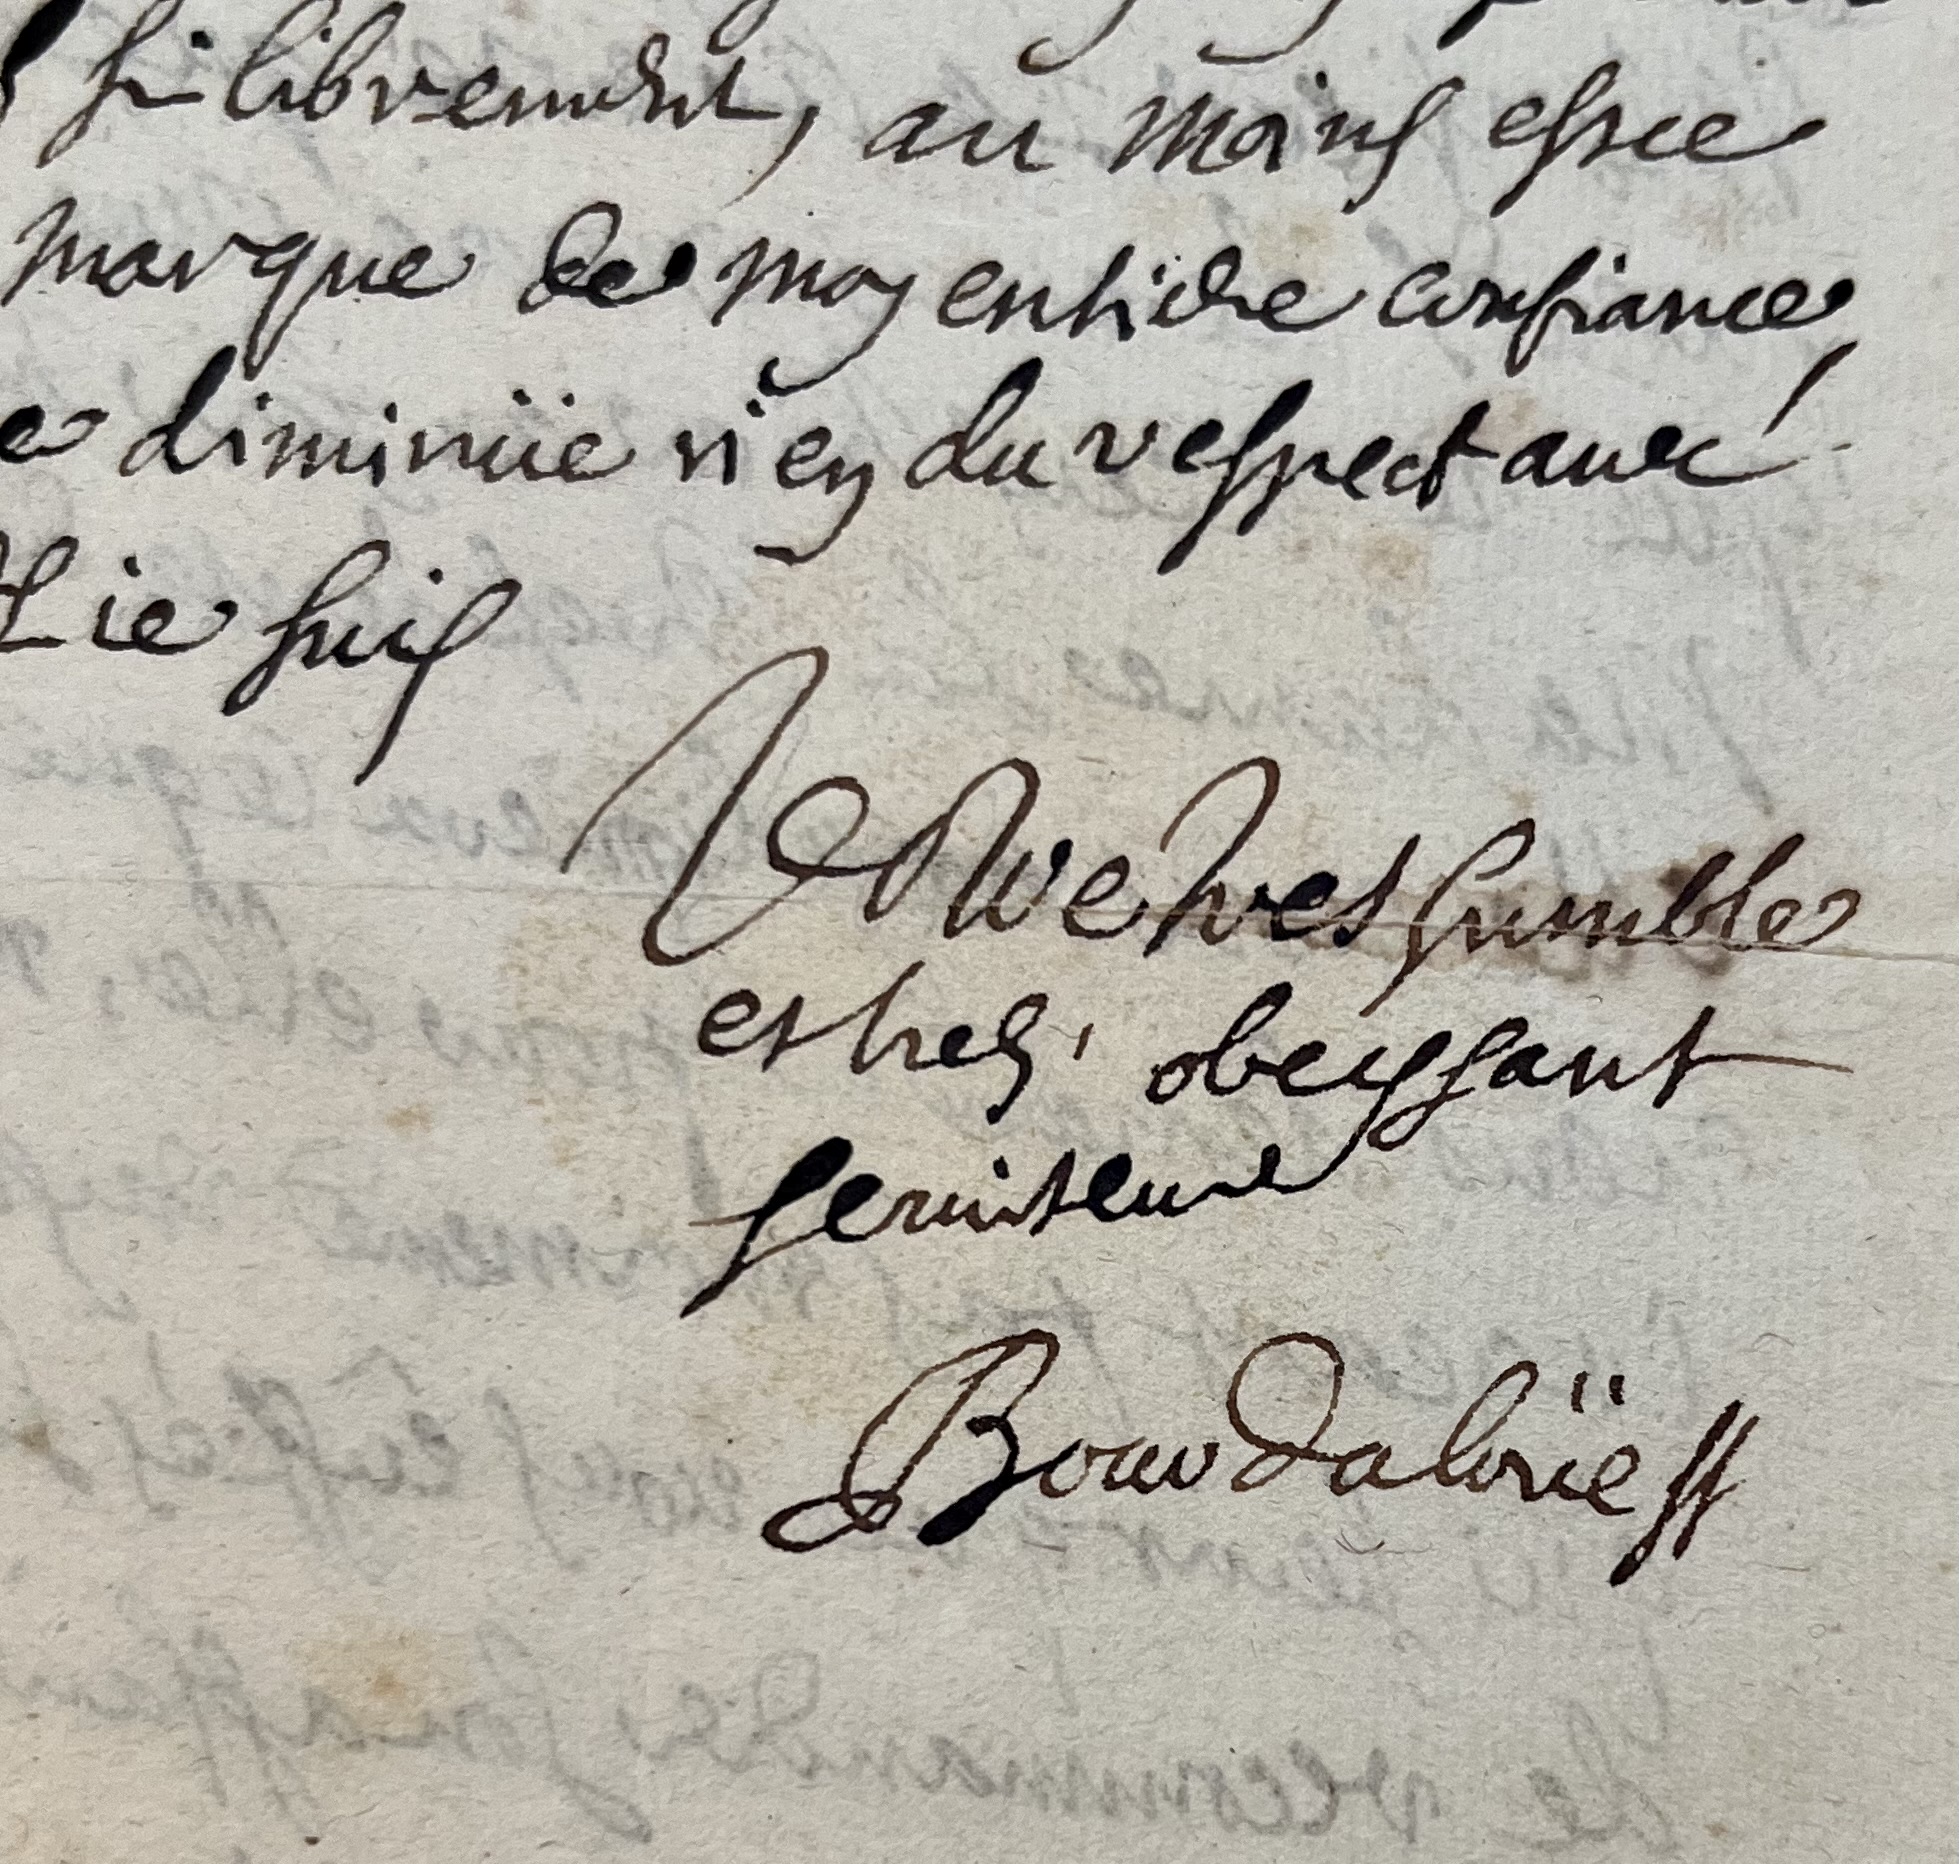 si librement, au moins estce
marque de moy entiere confiance,
e diminüe rien du respect auec
ie suis
Vostre tres humble
et tres obeyssant
seruiteur
Bourdaloüe